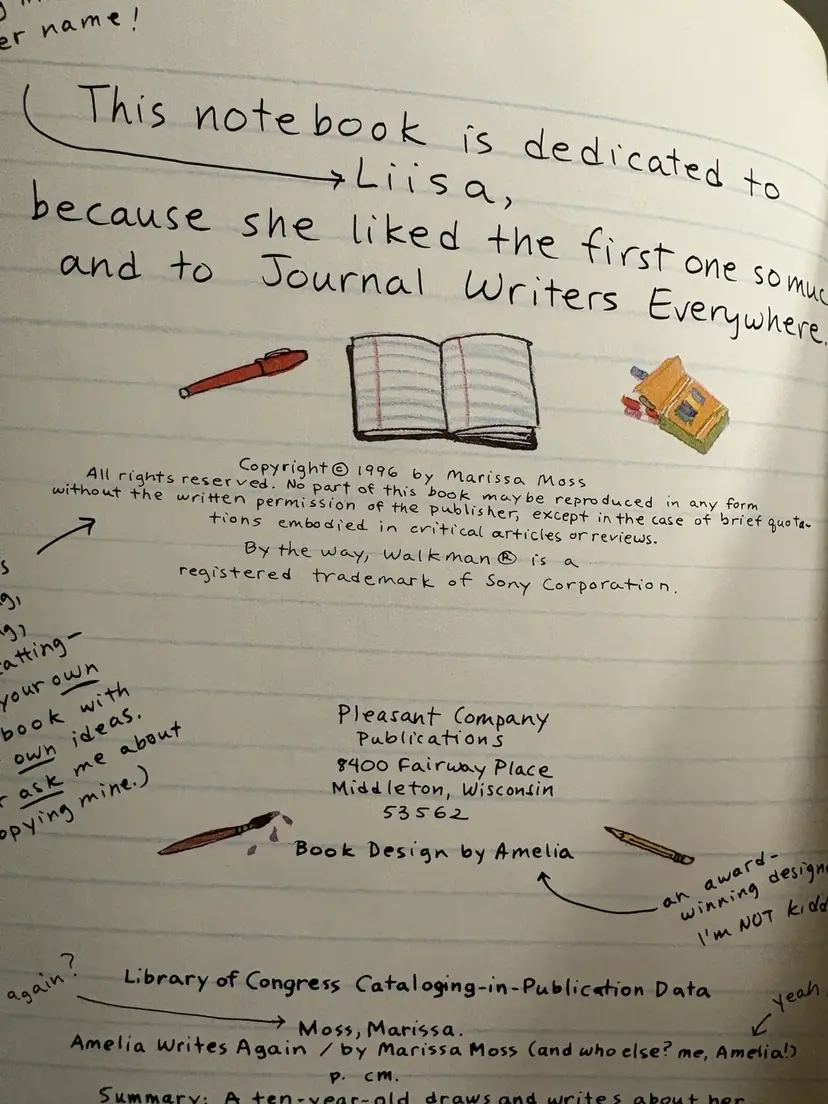 er name!
This notebook is dedicated to
Liisa,
because she liked the first one so muc
and to Journal Writers Everywhere.
Copyright © 1996 by Marissa Moss
All rights reserved. No part of this book may be reproduced in any form
without the written permission of the publisher, except in the case of brief quota-
tions embodied in critical articles or reviews.
By the way, Walkman ® is a
registered trademark of Sony Corporation.
s
g,
g,
atting-
your own
book with
own ideas.
r ask me about
opying mine.)
Pleasant Company
Publications
8400 Fairway Place
Middleton, Wisconsin
53562
Book Design by Amelia
an award-
winning design
I'm NOT kidd
again?
Library of Congress Cataloging-in-Publication Data
yeah
Moss, Marissa.
Amelia Writes Again / by Marissa Moss (and who else? me, Amelia!)
p. cm.
Summary: A ten-year-old draws and writes about her